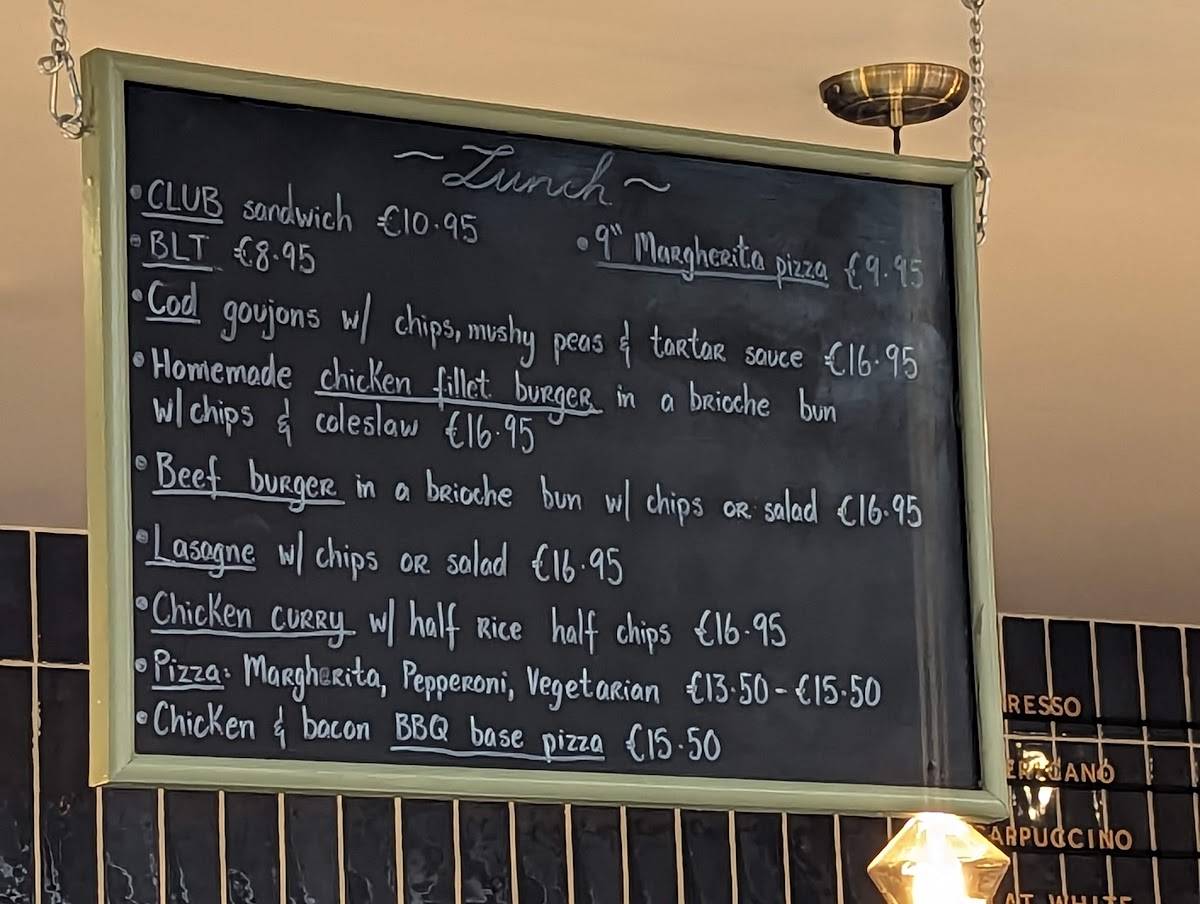 ~ Lunch ~
• CLUB sandwich €10.95
• BLT €8.95
• 9" Margherita pizza €9.95
• Cod goujons w/ chips, mushy peas & tartar sauce €16.95
• Homemade chicken fillet burger in a brioche bun
w/ chips & coleslaw €16.95
• Beef burger in a brioche bun w/ chips or salad €16.95
• Lasagne w/ chips or salad €16.95
• Chicken curry w/ half rice half chips €16.95
• Pizza: Margharita, Pepperoni, Vegetarian €13.50 - €15.50
• Chicken & bacon BBQ base pizza €15.50
RESSO
ERICANO
ARPUCCINO
AT WHITE